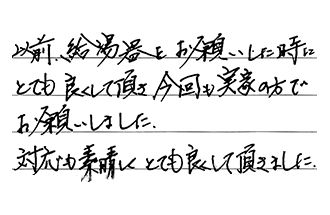 以前、給湯器をお願いした時に
とても良くして頂き今回も実家の方で
お願いしました.
対応も素晴しくとても良くして頂きました.